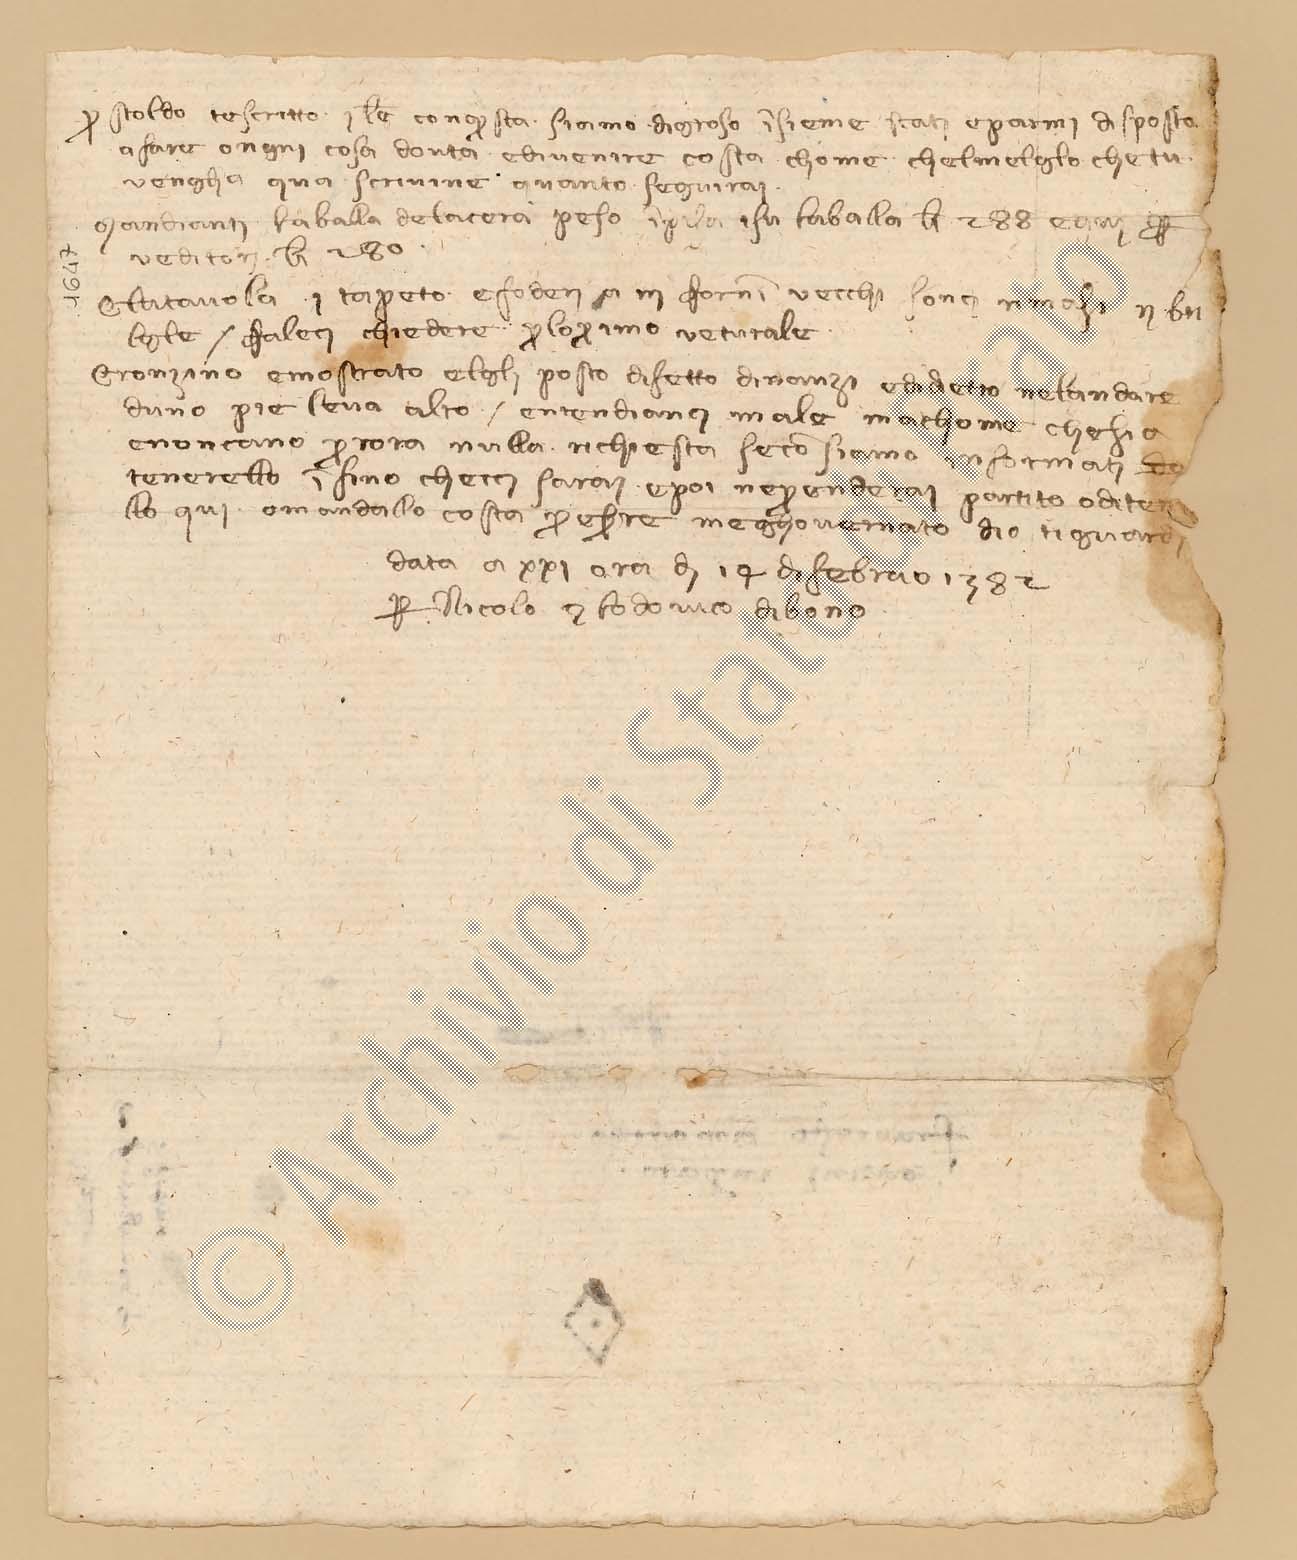 p stoldo tescritto i lre con questa siamo digroso isieme stati eparmi disposto
afare ongni cosa douta edivenire costa chome chelmelglo chetu
vengha qua scrivine quanto seguirai
Mandianti laballa delacera peso ipisa isu laballa lb 288 e qui p
veditori lb 280
Elatavola i tapeto e foderi a m forniti vecchi sonci rimasi i bu
lgle / faleci chiedere plopimo veturale
Eronzino emostrato elgli posto difetto dinanzi edidietro nelandare
duno pie leva alto / entendianci male machome chesia
enoncano prora nulla richiesta seco siamo informati do
tenerello isino checci sarai epoi nependerai partito oditen
lo qui omandallo costa p esere megghovernato dio ti guardi
data a xxi ora di 14 di febraio 1382
p Nicolo e lodovico dibono
1647
© Archivio di Stato di Prato